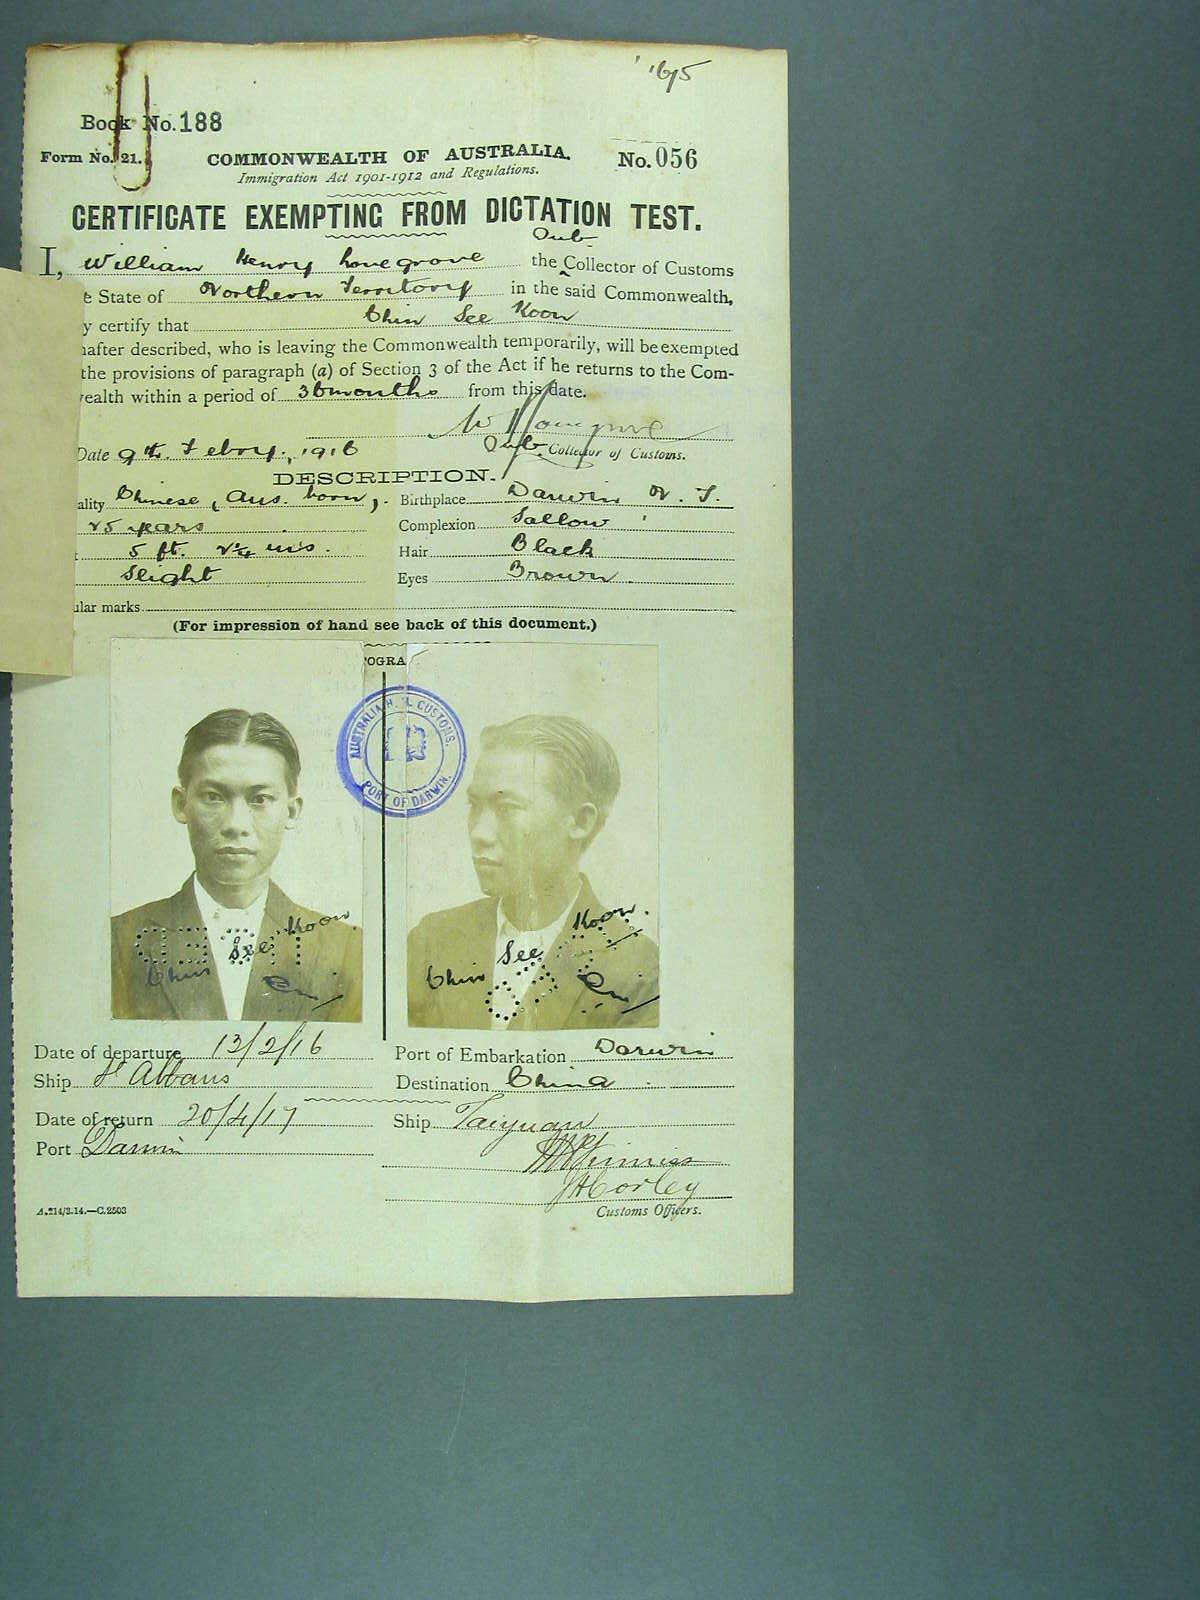 '16/5
Book No. 188
Form No. 21. COMMONWEALTH OF AUSTRALIA. No. 056
Immigration Act 1901-1912 and Regulations.
CERTIFICATE EXEMPTING FROM DICTATION TEST.
Sub.
I, William Henry Lovegrove the ^ Collector of Customs
e State of Northern Territory in the said Commonwealth,
y certify that Chin See Koon
nafter described, who is leaving the Commonwealth temporarily, will be exempted
the provisions of paragraph (a) of Section 3 of the Act if he returns to the Com-
wealth within a period of 36 months from this date.
W H Lovegrove
Date 9th. Febry., 1916 Sub. Collector of Customs.
DESCRIPTION.
ality Chinese, (Aus. born), Birthplace Darwin N. T.
25 years Complexion Sallow
5 ft. 2¼ ins. Hair Black
Slight Eyes Brown.
ular marks
(For impression of hand see back of this document.)
OGRA
AUSTRALIA H. M. CUSTOMS.
PORT OF DARWIN.
Chin See Koon.
Chin See Koon.
Date of departure 13/2/16 Port of Embarkation Darwin
Ship St Albans Destination China
Date of return 20/4/17 Ship Taiyuan
Port Darwin
JHCorley
A.214/3.14.—C.2503 Customs Officers.